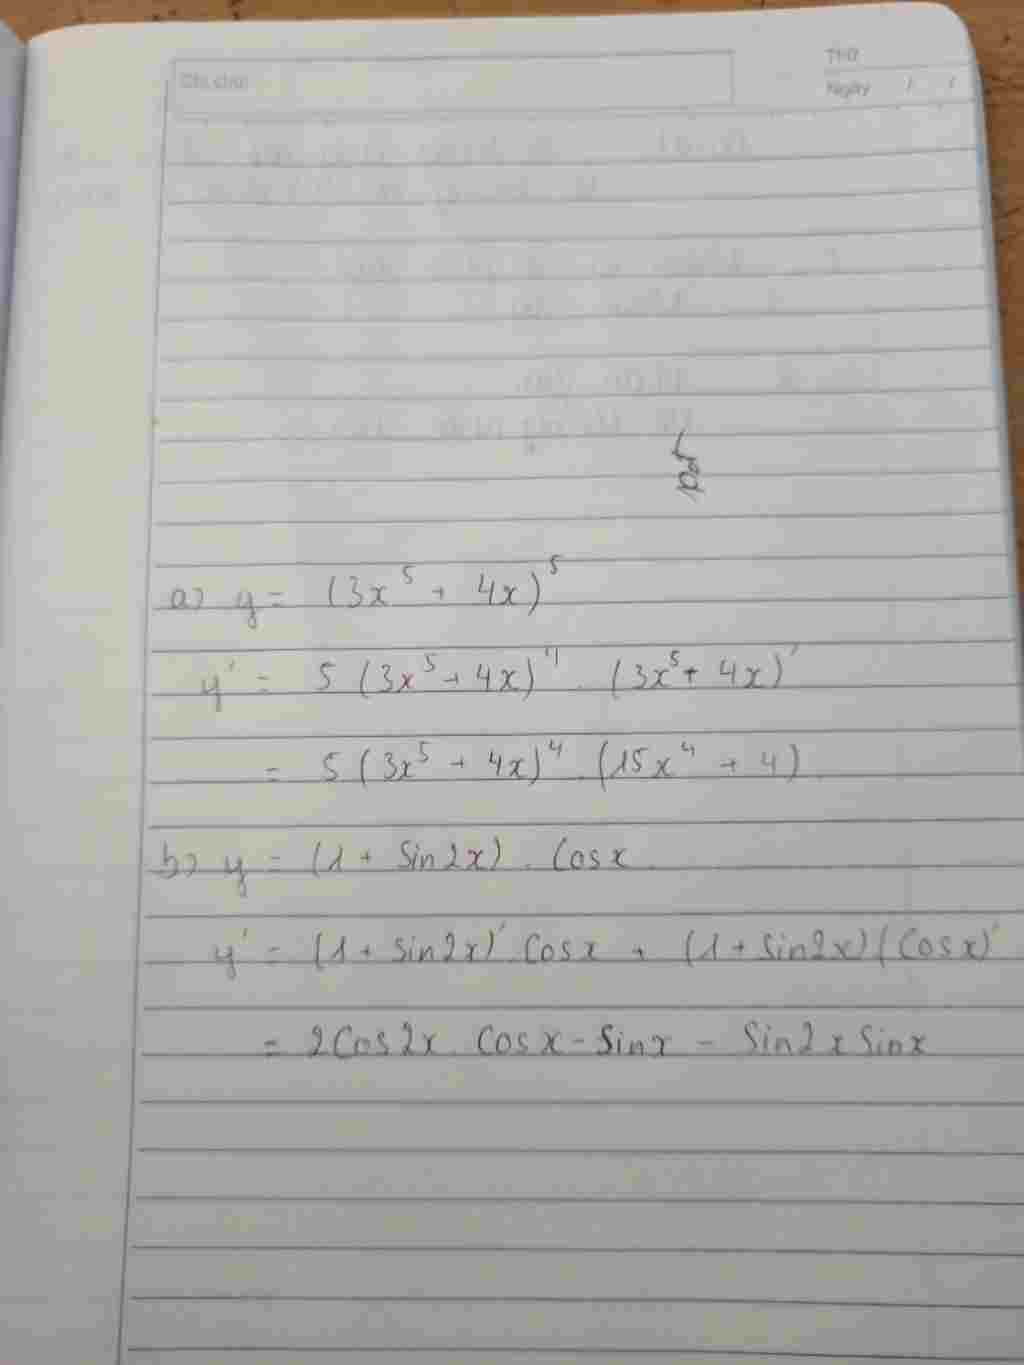 Ngày / /
a) y = (3x⁵ + 4x)⁵
y' = 5 (3x⁵ + 4x)⁴ . (3x⁵ + 4x)'
= 5 (3x⁵ + 4x)⁴ . (15x⁴ + 4)
b) y = (1 + Sin2x) . Cosx
y' = (1 + Sin2x)' . Cosx + (1 + Sin2x)(Cosx)'
= 2Cos2x . Cosx - Sinx - Sin2x Sinx